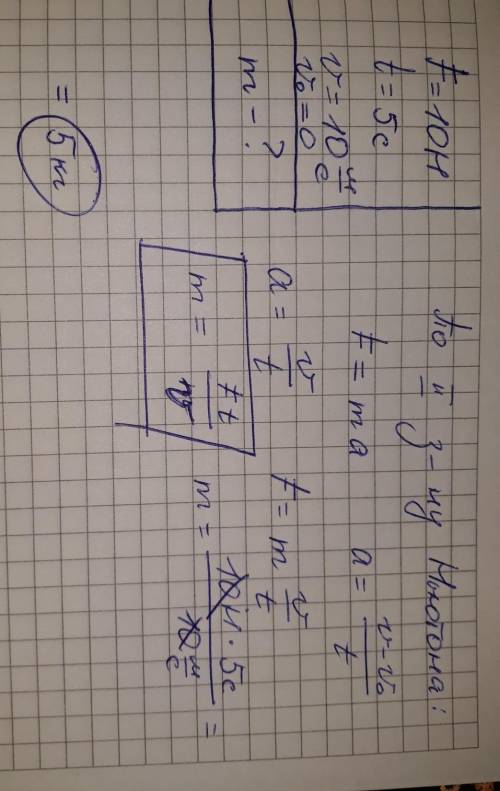 F = 10 Н
t = 5 с
v = 10 м/с
v₀ = 0
m - ?
По II з-ну Ньютона:
F = ma a = (v - v₀)/t
a = v/t F = m v/t
m = Ft/v m = (10 Н · 5 с)/(10 м/с) =
= 5 кг